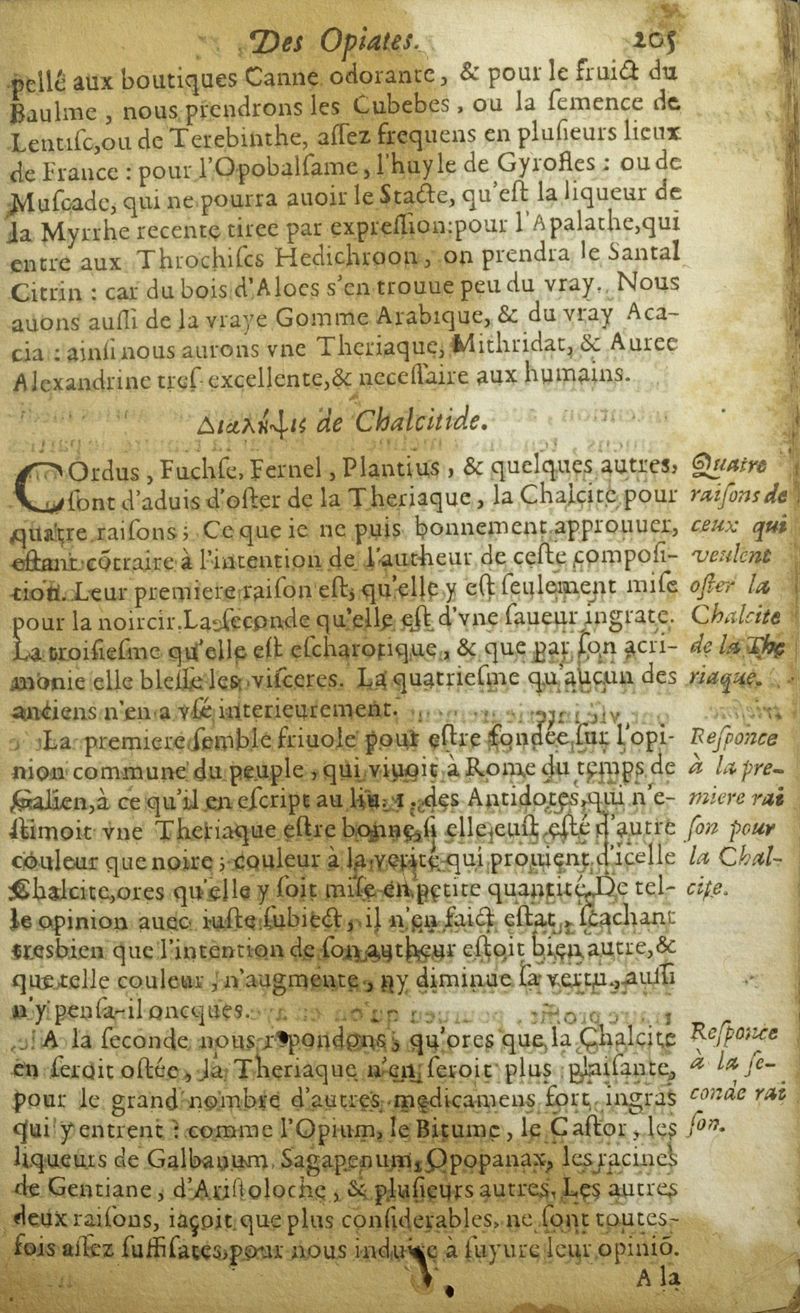 Des Opiates. 205
pellé aux boutiques Canne odorante, & pour le fruict du
Baulme, nous prendrons les Cubebes, ou la semence de
Lentisc, ou de Terebinthe, assez frequens en plusieurs lieux
de France : pour l'Opobalsame, l'huyle de Gyrofles : ou de
Muscade, qui ne pourra auoir le Stacte, qu'est la liqueur de
la Myrrhe recente tiree par expression: pour l'Apalathe, qui
entre aux Throchiscs Hedichroon, on prendra le Santal
Citrin : car du bois d'Aloes s'en trouue peu du vray. Nous
auons aussi de la vraye Gomme Arabique, & du vray Aca-
cia : ainsi nous aurons vne Theriaque, Mithridat, & Auree
Alexandrine tres excellente, & necessaire aux humains.
Διάληψις de Chalcitide.
COrdus, Fuchse, Fernel, Plantius, & quelques autres,
sont d'aduis d'oster de la Theriaque, la Chalcite pour
quatre raisons; Ce que ie ne puis bonnement approuuer,
estant cõtraire à l'intention de l'autheur de ceste composi-
tion. Leur premiere raison est, qu'elle y est seulement mise
pour la noircir. La seconde qu'elle est d'vne saueur ingrate.
La troisiesme qu'elle est escharotique, & que par son acri-
monie elle blesse les visceres. La quatriesme qu'aucun des
anciens n'en a vsé interieurement.
Quatre
raisons de
ceux qui
veulent
oster la
Chalcite
de la The
riaque.
La premiere semble friuole pour estre fondee sur l'opi-
nion commune du peuple, qui viuoit à Rome du temps de
Galien, à ce qu'il en escript au liu. 1. des Antidotes, qui n'e-
stimoit vne Theriaque estre bonne, si elle eust esté d'autre
couleur que noire; couleur à la verité qui prouient d'icelle
Chalcite, ores qu'elle y soit mise en petite quantité. De tel-
le opinion auec iuste subiect, il n'en faict estat, sçachant
tresbien que l'intention de son autheur estoit bien autre, &
que telle couleur, n'augmente, ny diminue sa vertu, aussi
n'y pensa-il oncques.
Responce
à la pre-
miere rai
son pour
la Chal-
cite.
A la seconde nous respondons, qu'ores que la Chalcite
en seroit ostée, la Theriaque n'en seroit plus plaisante,
pour le grand nombre d'autres medicamens fort ingras
qui y entrent : comme l'Opium, le Bitume, le Castor, les
liqueurs de Galbanum, Sagapenum, Opopanax, les racines
de Gentiane, d'Aristoloche, & plusieurs autres. Les autres
deux raisons, iaçoit que plus considerables, ne sont toutes-
fois assez suffisãtes, pour nous induire à suyure leur opiniõ.
Responce
à la se-
conde rai
son.
A la